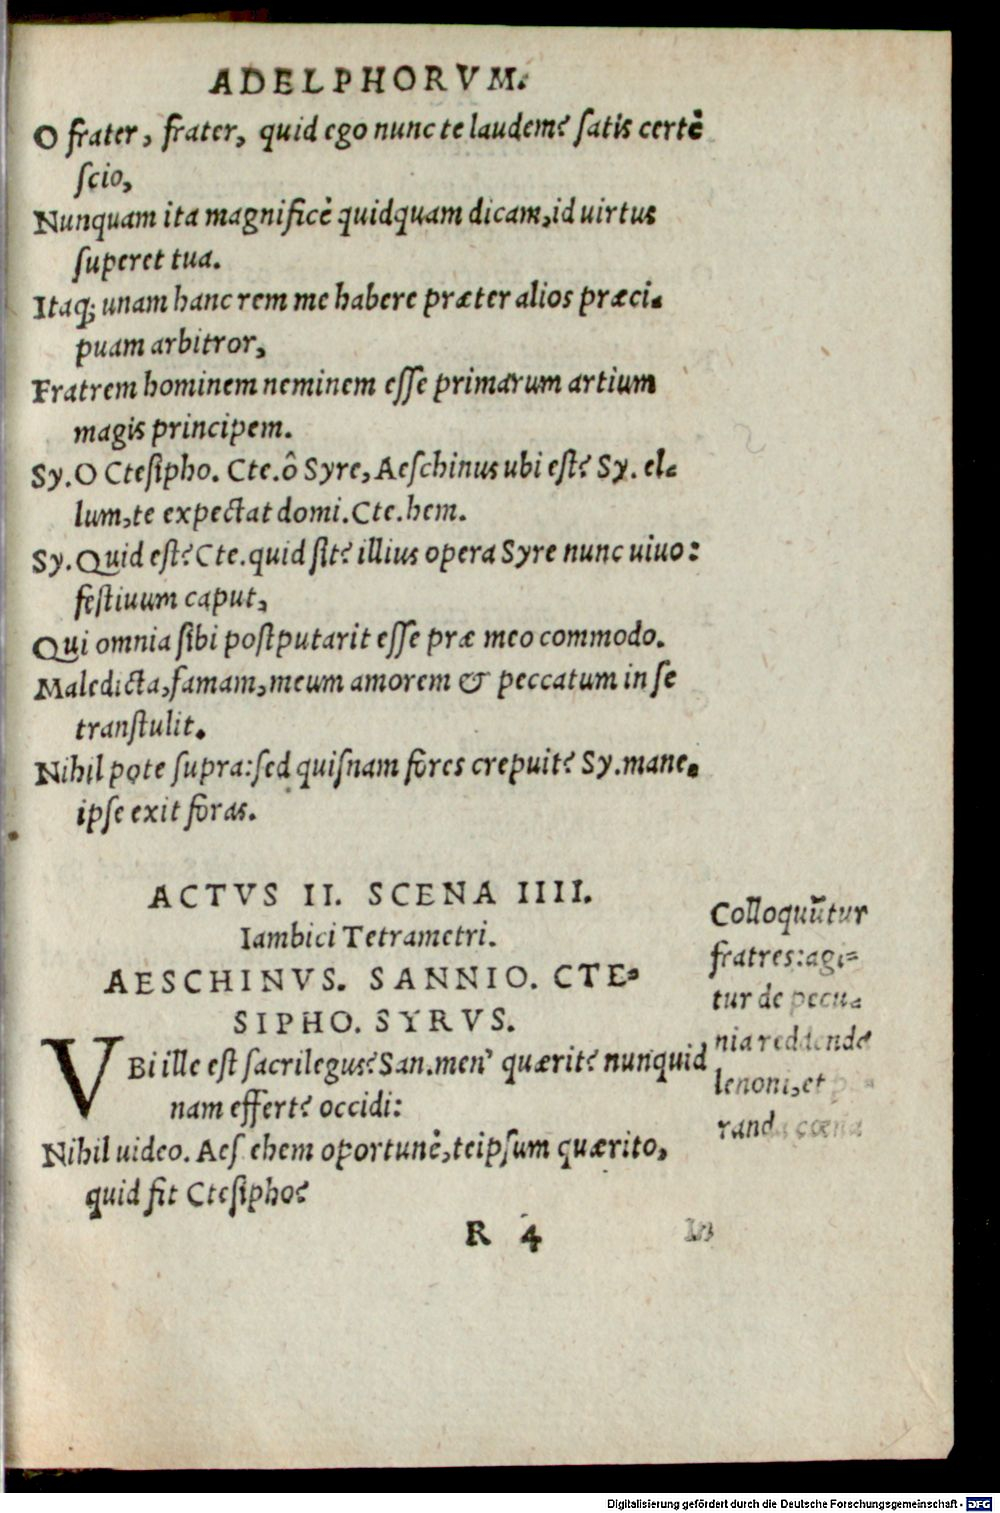 ADELPHORVM.
O frater, frater, quid ego nunc te laudem? ſatis certè
ſcio,
Nunquam ita magnificè quidquam dicam, id uirtus
ſuperet tua.
Itaq; unam hanc rem me habere præter alios præci-
puam arbitror,
Fratrem hominem neminem eſſe primarum artium
magis principem.
Sy. O Cteſipho. Cte. ô Syre, Aeſchinus ubi eſt? Sy. el-
lum, te expectat domi. Cte. hem.
Sy. Quid eſt? Cte. quid ſit? illius opera Syre nunc uiuo:
feſtiuum caput,
Qui omnia ſibi poſtputarit eſſe præ meo commodo.
Maledicta, famam, meum amorem & peccatum in ſe
tranſtulit.
Nihil pote ſupra: ſed quiſnam fores crepuit? Sy. mane.
ipſe exit foras.
ACTVS II. SCENA IIII.
Iambici Tetrametri.
AESCHINVS. SANNIO. CTE-
SIPHO. SYRVS.
VBi ille eſt ſacrilegus? San. men' quærit? nunquid
nam effert? occidi:
Nihil uideo. Aeſ ehem oportunè, teipſum quærito,
quid fit Cteſipho?
Colloquũtur
fratres: agi-
tur de pecu-
nia reddenda
lenoni, et
randa cœna
R 4